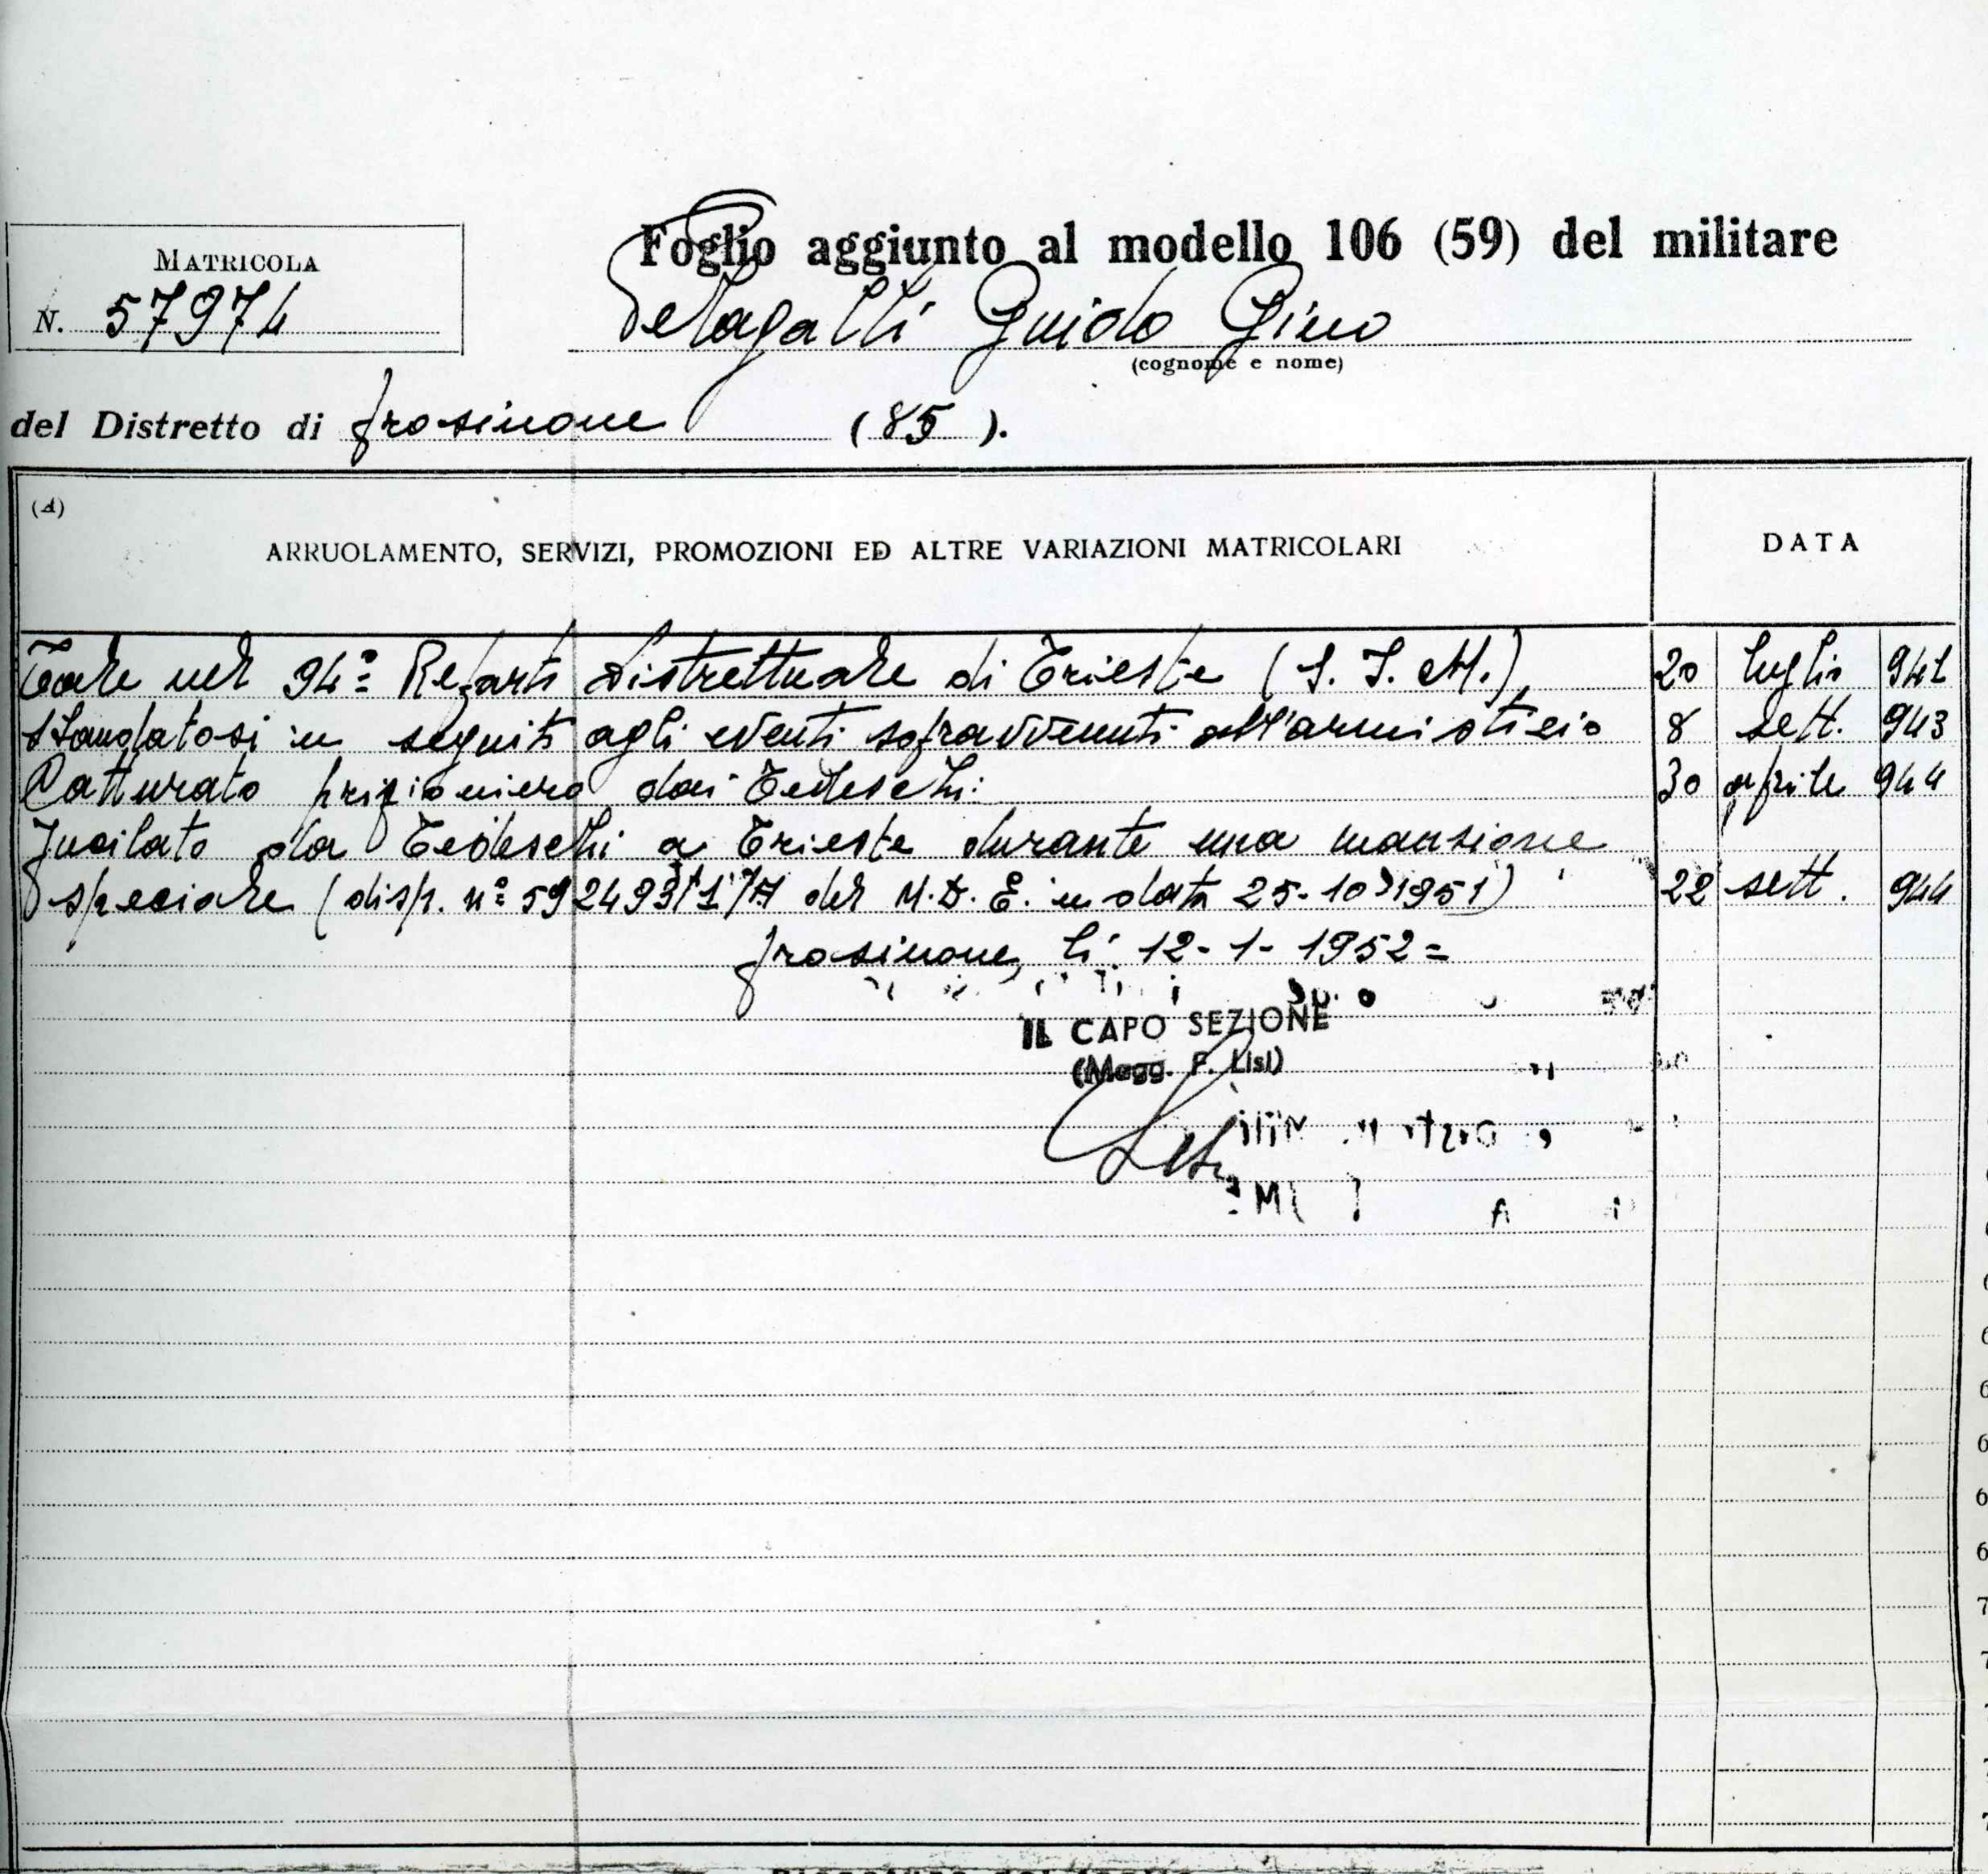 Foglio aggiunto al modello 106 (59) del militare
MATRICOLA
N. 57974
Pelagalli Guido Gino
(cognome e nome)
del Distretto di Frosinone (85).
(A)
ARRUOLAMENTO, SERVIZI, PROMOZIONI ED ALTRE VARIAZIONI MATRICOLARI DATA
Tale nel 94º Reparto Distrettuale di Trieste (S. I. M.), 20 luglio 941
Sbandatosi in seguito agli eventi sopravvenuti all'armistizio 8 sett. 943
Catturato prigioniero dai Tedeschi 30 aprile 944
Fucilato dai Tedeschi a Trieste durante una mansione
speciale (disp. nº 592493/1/A del M.D.E. in data 25-10-1951) 22 sett. 944
Frosinone, lì 12-1-1952=
IL CAPO SEZIONE
(Magg. F. Lisi)
Lisi